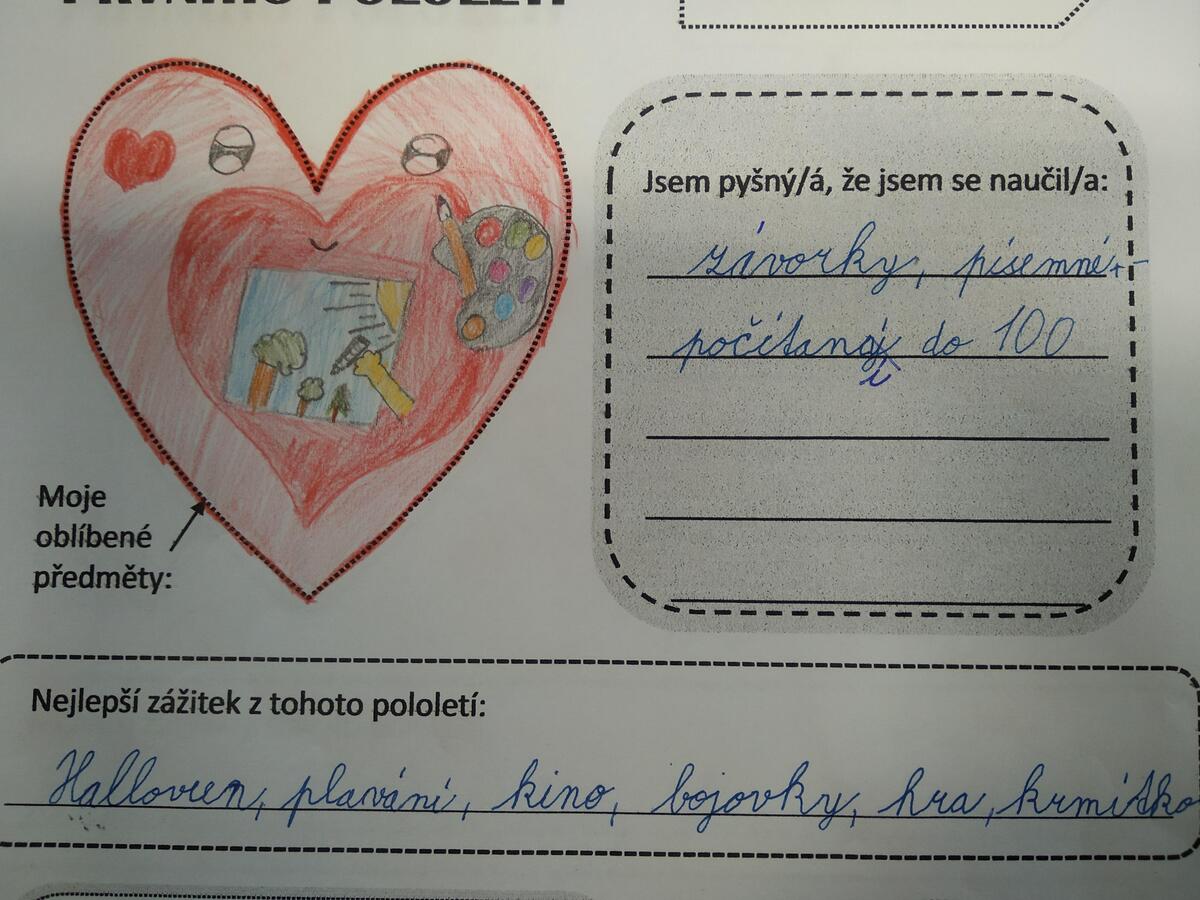 PRVNÍHO POLOLETÍ
Jsem pyšný/á, že jsem se naučil/a:
závorky, písemné+-
počítaní do 100
Moje
oblíbené
předměty:
Nejlepší zážitek z tohoto pololetí:
Halloveen, plavání, kino, bojovky, hra, krmítko